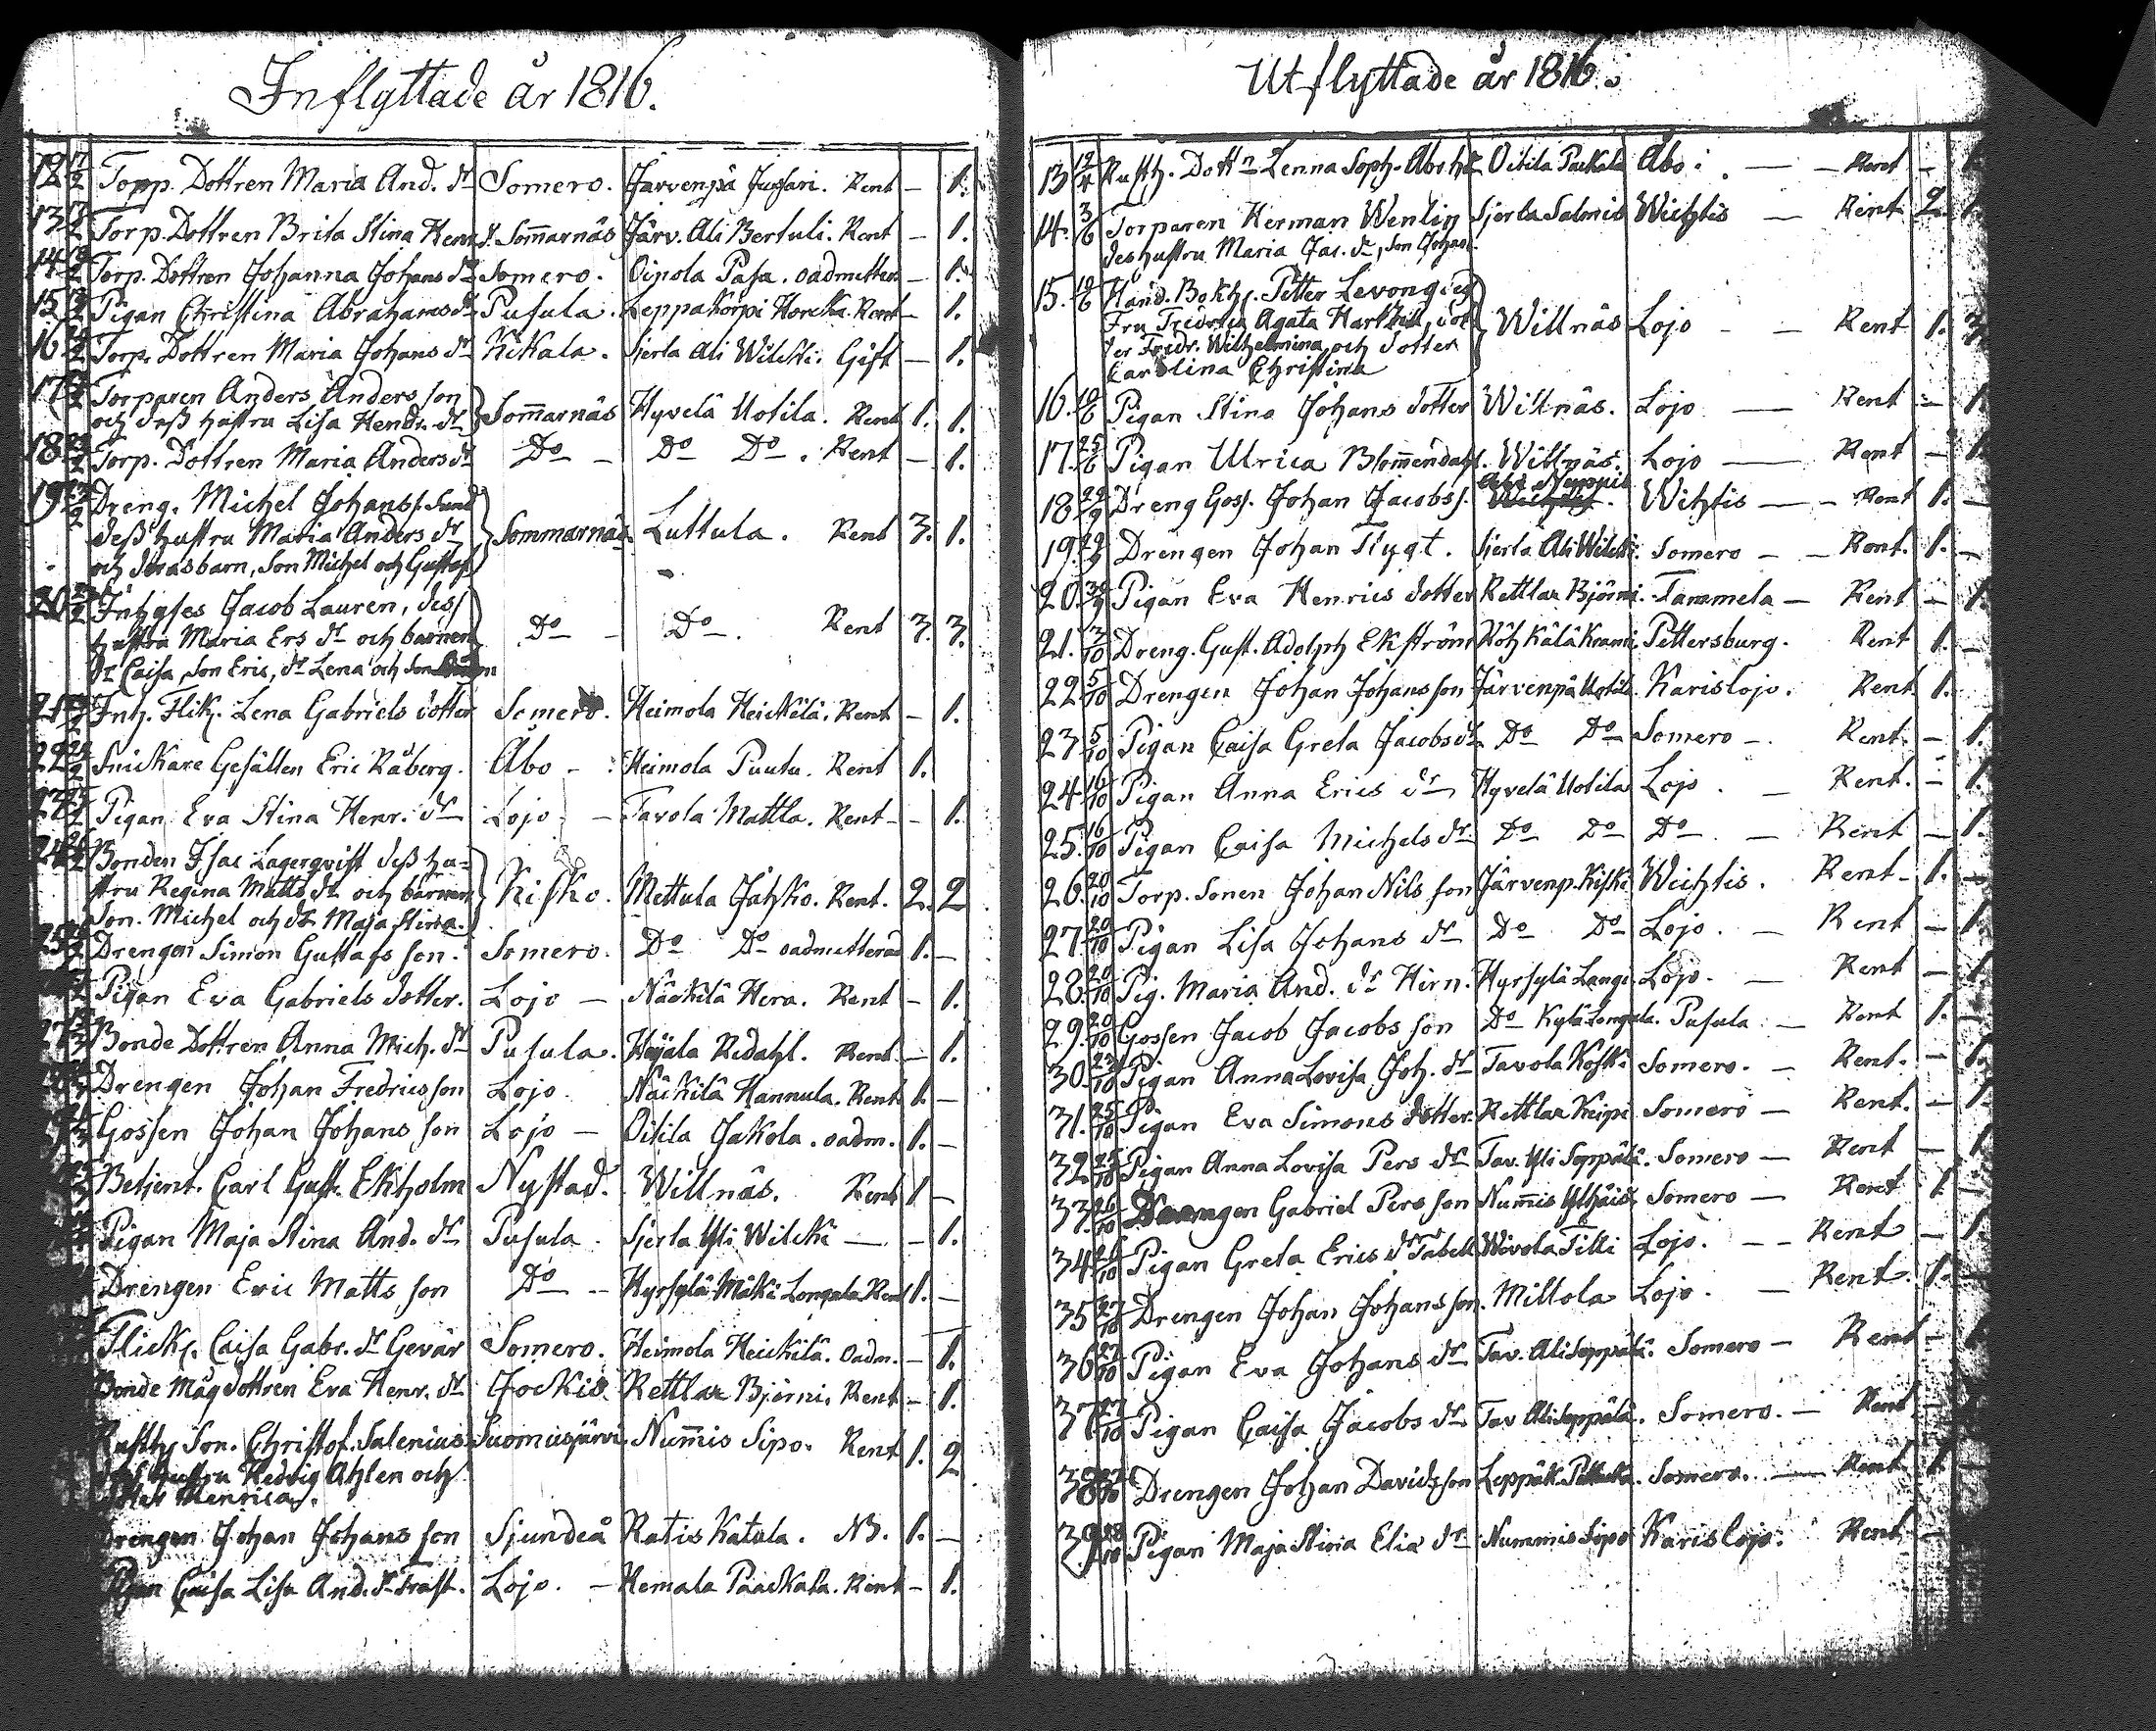 Inflyttade år 1816.
12 17/2 Topp. Dottren Maria And. dr Somero. Jarvenpä Jussari. Rent — 1.
13 Torp. Dottren Brita Stina Henr. d. Som̄arnäs Järv. Ali Bertuli. Rent — 1.
14 Torp. Dottren Johanna Johans dr Somero. Oinola Pasa. oadmitter. — 1.
15 Pigan Christina Abrahams dr Pusula. Leppäkorpi Horcka. Rent — 1.
16 Torp. Dottren Maria Johans dr Kikala. Sjerla Ali Wilcki. Gift — 1.
17 Torparen Anders Anders son
och dess hustru Lisa Hendr. dr Som̄arnäs Hyvelä Uotila. Rent 1. 1.
18. Torp. Dottren Maria Anders dr Do — Do Do. Rent — 1.
19 Dreng. Michel Johans s. Sund
dess hustru Maria Anders dr Sommarnäs Luttula. Rent 3. 1.
och deras barn, Son Michel och Gustaf
20 Inhyses Jacob Lauren, dess
hustru Maria Ers dr och barnen Do — Do. Rent 3. 3.
dr Caisa, Son Eric, dr Lena och Son
21 Inh. Flik. Lena Gabriels dotter Somero. Heimola Heickilä. Rent — 1.
22 Snickare Gesällen Eric Råberg. Åbo — Heimola Puutu. Rent 1.
Pigan Eva Stina Henr. dr Lojo — Tavola Mattla. Rent — 1.
24 Bonden Isac Lagerqvist dess hu=
stru Regina Matts dr och barnen Kisko. Mettula Jahko. Rent. 2. 2
Son. Michel och dr Maja Stina.
25 Drengen Simon Gustafs son. Somero. Do Do oadmitterad 1. —
Pigan Eva Gabriels dotter. Lojo — Näckilä Hera. Rent — 1.
27 Bonde Dottren Anna Mich. dr Pusula. Heijala Redahl. Rent. — 1.
Drengen Johan Fredrics son Lojo. Näckilä Hannula. Rent 1. —
Gossen Johan Johans son Lojo — Oitila Jakola. oadm. 1. —
Betjent. Carl Gust. Ekholm Nystad. Willnäs. Rent 1 —
Pigan Maja Stina And. dr Pusula. Sjerla Yli Wilcki — — 1.
Drengen Eric Matts son Do — Hyrsylä Mäki Longala Rent 1. —
Flick. Caisa Gabr. dr Gevär Somero. Heimola Heickilä. Oadm. — 1.
Bonde Mågdottren Eva Henr. dr Jockis Rettlax Björni. Rent — 1.
Rusth. Son. Christof. Salenius Suomusjärvi Num̄is Sipo. Rent 1. 2
dess hustru Hedvig Ahlen och
dotter Henrica.
Drengen Johan Johans son Sjundeå Ratis Katala. NB. 1. —
Pigan Caisa Lisa And. dr Trast. Lojo. — Hemala Paackala. Rent — 1.
Utflyttade år 1816.
13 12/4 Rusth. Dottn Lenna Soph. Oitila Packala Åbo. — Rent — 1
14. 3/6 Torparen Herman Wenlin Sjerla Salmis Wichtis — Rent 2. 1.
des hustru Maria Jac. dr, Son Johan.
15. 10/6 Hand. Bokh. Petter
Fru Fredrica Agata dot Willnäs Lojo — — Rent 1. 3
ter Fredr. Wilhelmina och dotter
Carolina Christina
16. 10/6 Pigan Stina Johans dotter Willnäs. Lojo — Rent — 1.
17. 25/6 Pigan Ulrica Blom̄endahl. Willnäs. Lojo — Rent — 1.
18 22/9 Dreng Goss. Johan Jacobs s. Wihtis — Rent 1. —
19. 29/9 Drengen Johan Flygt. Sjerla Ali Wilcki. Somero — — Rent. 1. —
20. 30/9 Pigan Eva Henrics dotter Rettlax Björni. Tammela — Rent — 1.
21. 3/10 Dreng. Gust. Adolph Ekström Röhkälä Pettersburg. Rent 1. —
22 5/10 Drengen Johan Johans son Järvenpä Uotila. Karislojo. Rent 1.
23 5/10 Pigan Caisa Greta Jacobs dr Do Do Somero — Rent. — 1.
24 16/10 Pigan Anna Erics dr Hyvelä Uotila Lojo. — Rent. — 1.
25. 16/10 Pigan Caisa Michels dr. Do Do Do — Rent — 1.
26. 20/10 Torp. Sonen Johan Nils son Järvenp. Kiski Wichtis. Rent — 1. —
27. 20/10 Pigan Lisa Johans dr Do Do Lojo. — Rent — 1.
28. 20/10 Pig. Maria And. dr Hirn. Hyrsylä Lange. Lojo. — Rent — 1.
29. 20/10 Gossen Jacob Jacobs son Do Kylä Longala. Pusula. — Rent 1. —
30. 23/10 Pigan Anna Lovisa Joh. dr Tavola Koski Somero. — Rent. — 1.
31. 25/10 Pigan Eva Simons dotter. Rettlax Keipi Somero — Rent. — 1.
32 25/10 Pigan Anna Lovisa Pers dr Tav. Yli Seppälä. Somero — Rent — 1
33. 26/10 Drengen Gabriel Pers son Num̄is Somero — Rent 1. —
34 26/10 Pigan Greta Erics dr Tabell Wivola Tilli Lojo. — Rent — 1.
35 27/10 Drengen Johan Johans son. Millola Lojo. — Rent. 1. —
36 27/10 Pigan Eva Johans dr Tav. Ali Seppälä. Somero — Rent — 1
37 27/10 Pigan Caisa Jacobs dr Tav. Ali Seppälä. Somero. — Rent —
38 27/10 Drengen Johan Davids son Leppäk. Somero. — Rent 1. —
39 28/10 Pigan Maja Stina Elia dr Nummis Sipo Karislojo. Rent —